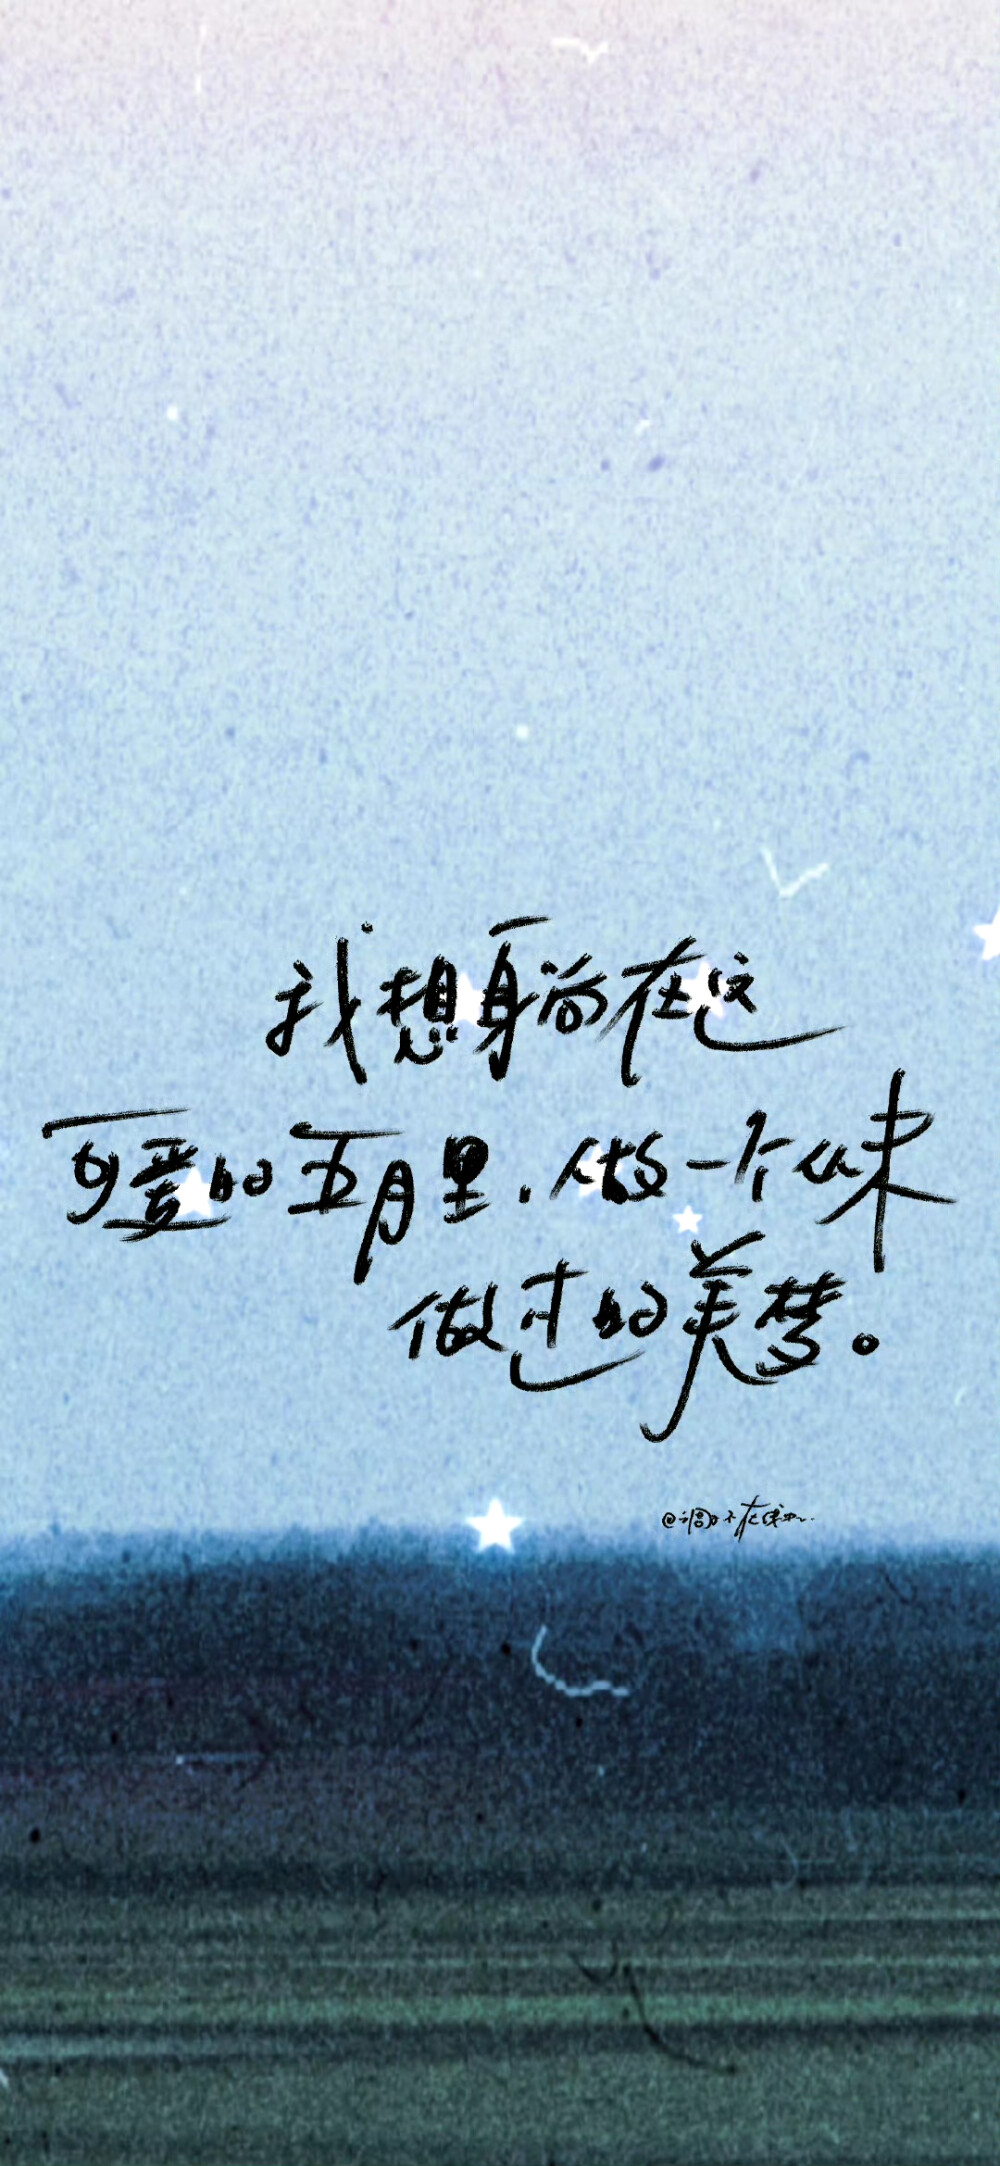 我想躺在这
可爱的五月里.做一个从未
做过的美梦。